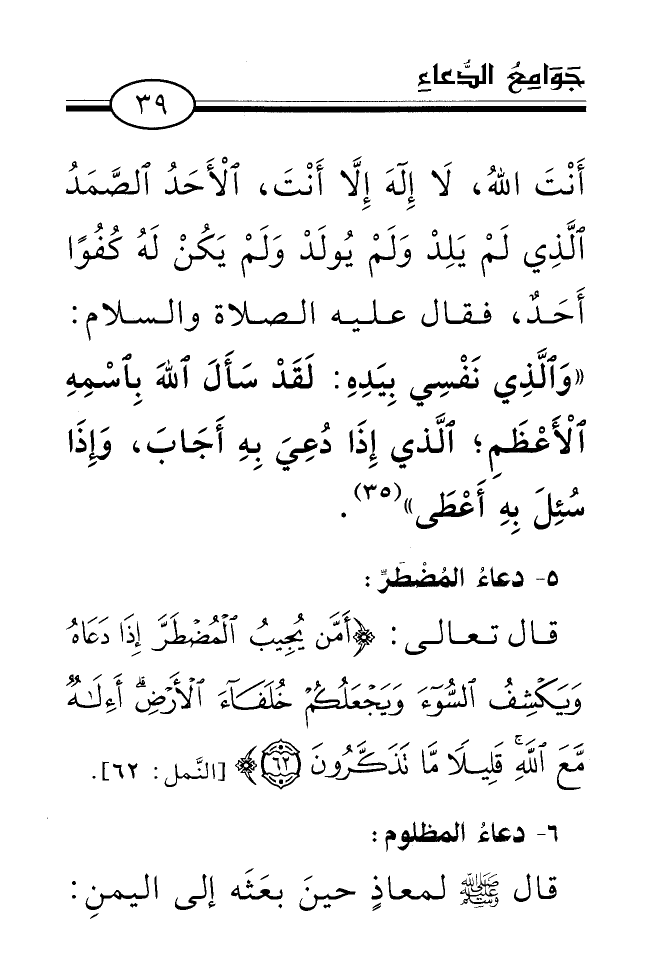 جَوَامِعُ الدُّعَاءِ
٣٩
أَنْتَ اللهُ، لَا إِلٰهَ إِلَّا أَنْتَ، ٱلْأَحَدُ ٱلصَّمَدُ
ٱلَّذِي لَمْ يَلِدْ وَلَمْ يُولَدْ وَلَمْ يَكُنْ لَهُ كُفُوًا
أَحَدٌ، فقال عليه الصلاة والسلام:
«وَٱلَّذِي نَفْسِي بِيَدِهِ: لَقَدْ سَأَلَ ٱللهَ بِٱسْمِهِ
ٱلْأَعْظَمِ؛ ٱلَّذي إِذَا دُعِيَ بِهِ أَجَابَ، وَإِذَا
سُئِلَ بِهِ أَعْطَى»(٣٥).
٥- دعاءُ المُضْطَرِّ:
قال تعالى: ﴿أَمَّن يُجِيبُ ٱلْمُضْطَرَّ إِذَا دَعَاهُ
وَيَكْشِفُ ٱلسُّوٓءَ وَيَجْعَلُكُمْ خُلَفَآءَ ٱلْأَرْضِ ۗ أَءِلَٰهٌ
مَّعَ ٱللَّهِ ۚ قَلِيلًا مَّا تَذَكَّرُونَ ٦٢﴾ [النَّمل: ٦٢].
٦- دعاءُ المظلوم:
قال ﷺ لمعاذٍ حينَ بعَثَه إلى اليمنِ: